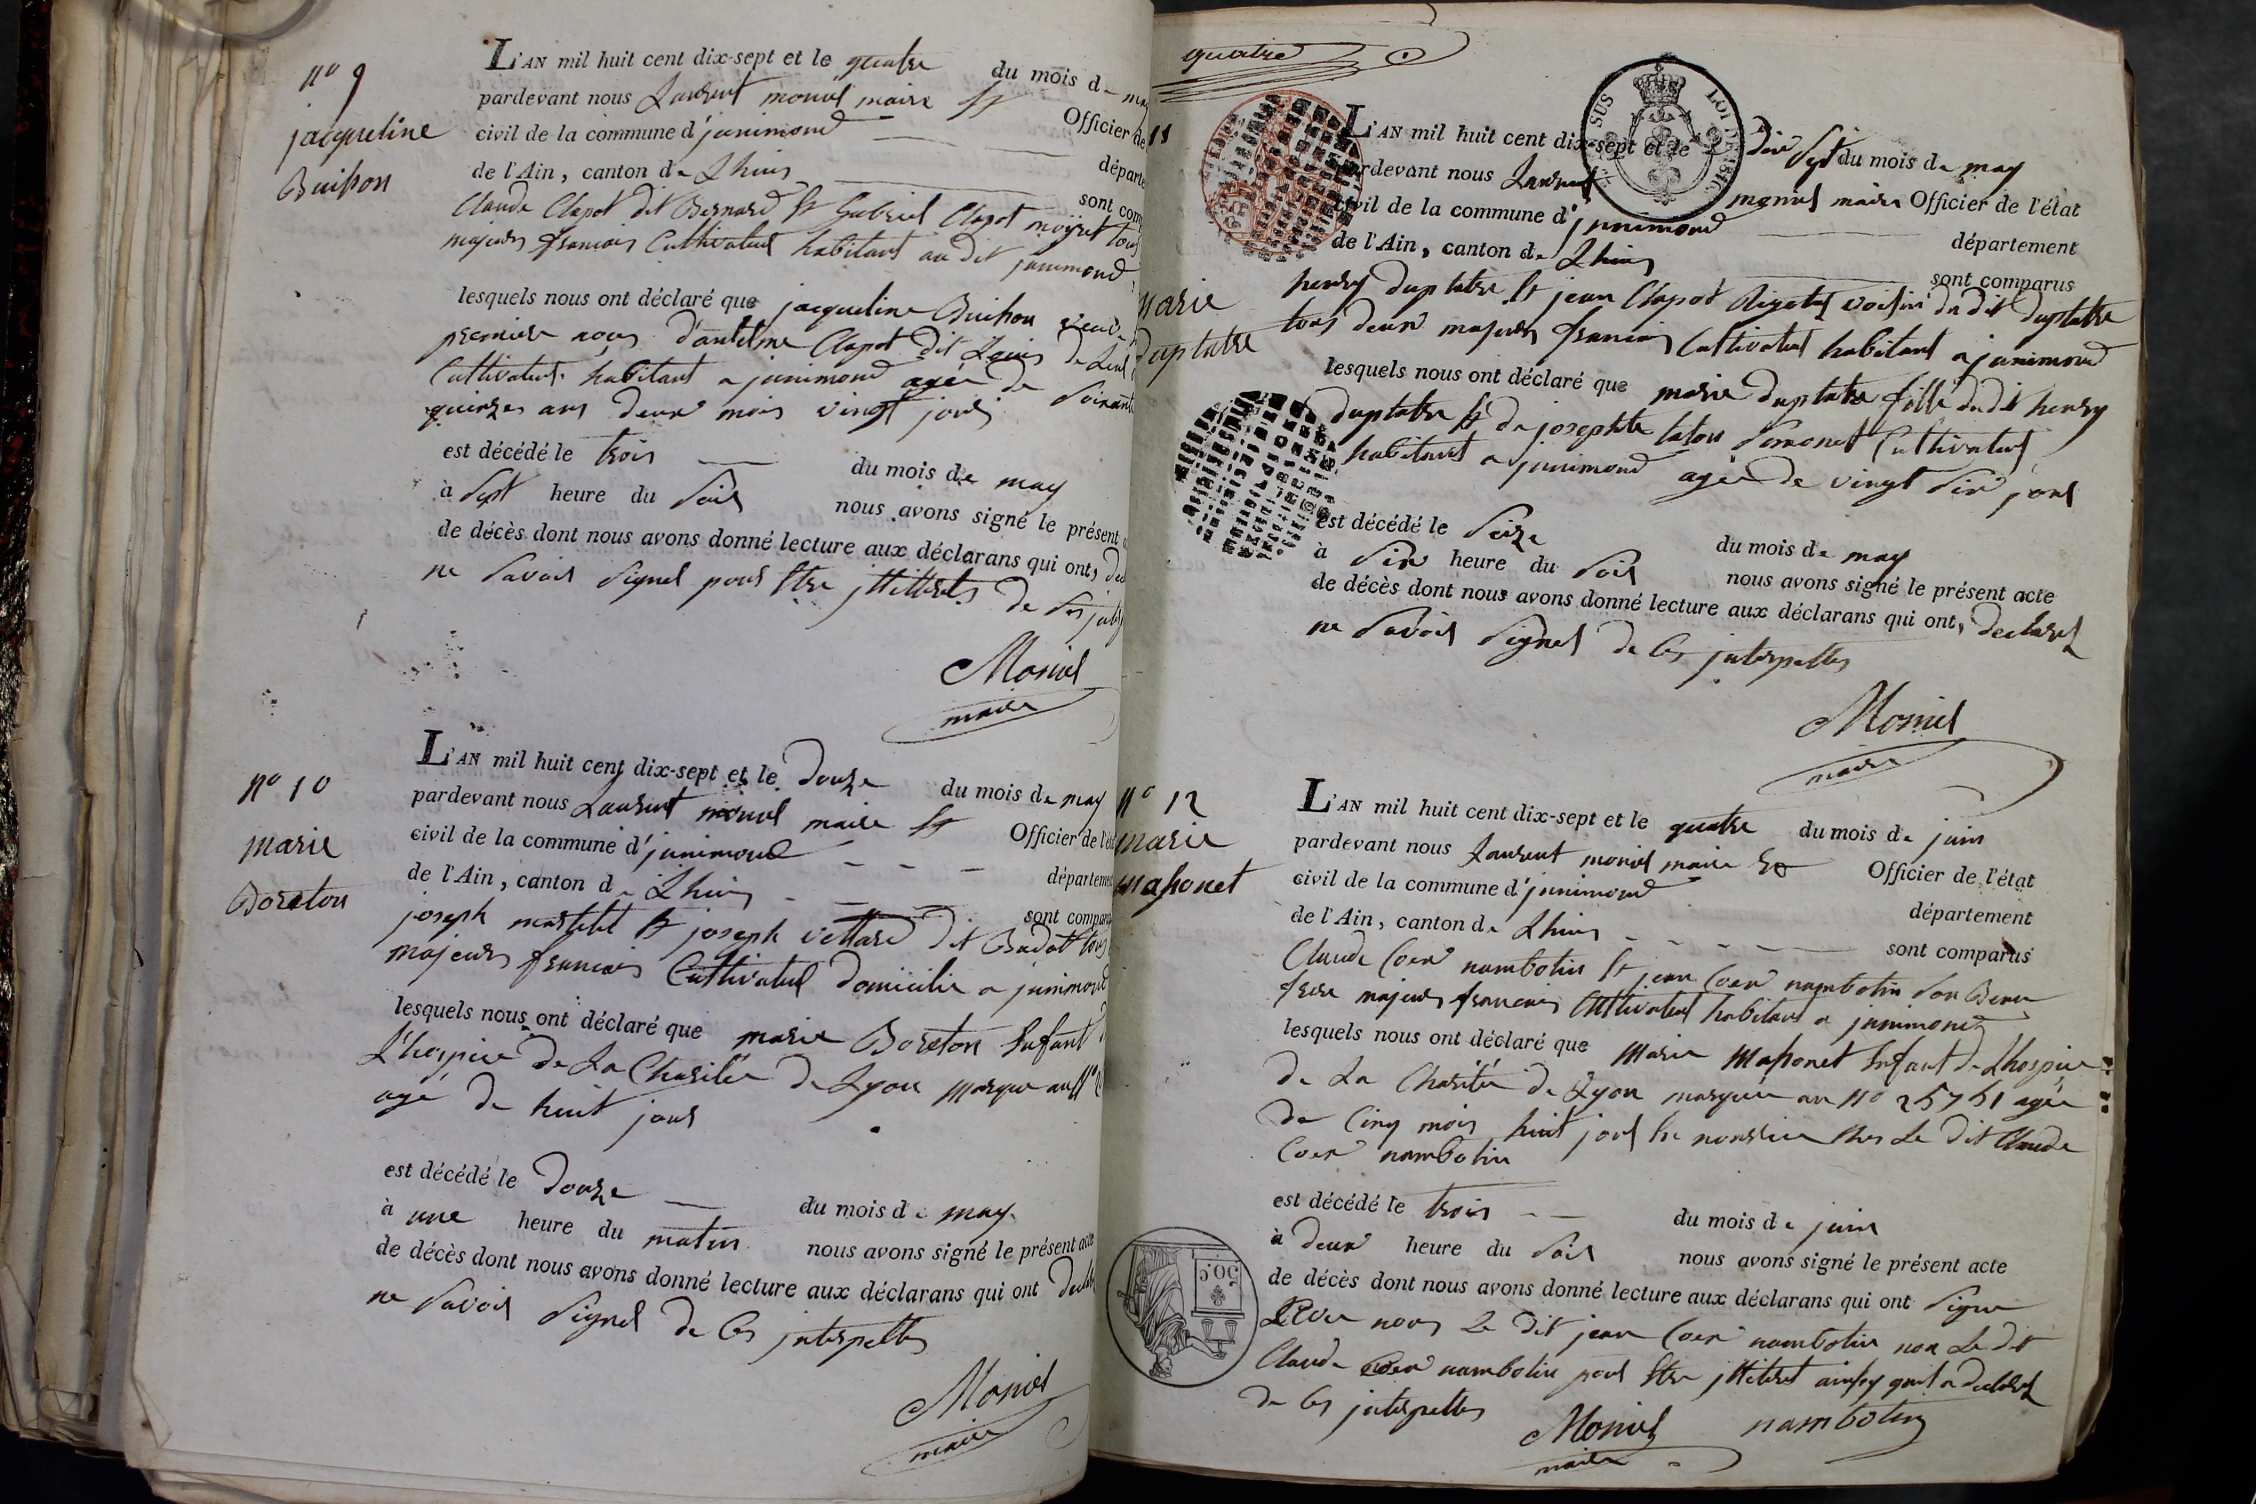 nº 9
jacqueline
Buisson
L'AN mil huit cent dix-sept et le quatre du mois de
pardevant nous Laurent moniel maire et Officier de
civil de la commune d'junimond départe
de l'Ain, canton de Lhuis sont com
Claude Clapot dit Bernard et Gabriel Clapot moiret tous
majeurs francais Cultivateur habitant au dit junimond
lesquels nous ont déclaré que jacqueline Buisson
premiere noces d'antelme Clapot dit Louis de
Cultivateur habitant a junimond agée de Soixante
quinzes ans deux mois vingt jour
est décédé le trois du mois de may
à Sept heure du Soir nous avons signé le présent
de décès dont nous avons donné lecture aux déclarans qui ont,
ne Savoir Signer pour Etre jlliteret de
Moniel
maire
nº 10
marie
Boreton
L'AN mil huit cent dix-sept et le douze du mois de may
pardevant nous Laurent moniel maire et Officier de l'ét
civil de la commune d'junimond départemen
de l'Ain, canton de Lhuis sont compar
joseph et joseph vettard dit Budot tous
majeurs francais Cultivateur domicilie a junimond
lesquels nous ont déclaré que marie Boreton Enfant
L'hospice de La Charitée de Lyon marque au nº
agé de huit jour
est décédé le Douze du mois de may
à une heure du matin nous avons signé le présent acte
de décès dont nous avons donné lecture aux déclarans qui ont
ne Savoir Signer de Ces jnterpelles
Moniel
maire
quatre
11
marie
duplatre
L'AN mil huit cent dix-sept et le dix Sept du mois de may
pardevant nous Laurent moniel maire Officier de l'état
civil de la commune d'junimond département
de l'Ain, canton de Lhuis sont comparus
henry duplatre et jean Clapot voisin du dit duplatre
tous deux majeurs francais Cultivateur habitant a junimond
lesquels nous ont déclaré que marie duplatre fille dudit henry
duplatre et de josephte Cultivateur
habitant a junimond agée de vingt Six jour
est décédé le Seize du mois de may
à Six heure du Soir nous avons signé le présent acte
de décès dont nous avons donné lecture aux déclarans qui ont, declaret
ne Savoir Signer de Ces jnterpelles
Moniel
maire
nº 12
marie
massonet
L'AN mil huit cent dix-sept et le quatre du mois de juin
pardevant nous Laurent moniel maire et Officier de l'état
civil de la commune d'junimond département
de l'Ain, canton de Lhuis sont comparus
Claude Coer nambotin et jean Coer nambotin Son Beau
frere majeurs francais Cultivateur habitant a junimond
lesquels nous ont déclaré que marie massonet Enfant de Lhospice
de La Charitée de Lyon marquée au nº 25751 agée
de Cinq mois huit jour En nourrice Ches Le dit Claude
Coer nambotin
est décédé le trois du mois de juin
à deux heure du Soir nous avons signé le présent acte
de décès dont nous avons donné lecture aux déclarans qui ont Signe
avec nous Le dit jean Coer nambotin non Le dit
Claude Coer nambotin pour Etre jlliteret ainssy quil a declaret
de Ces jnterpelles
Moniel nambotin
maire